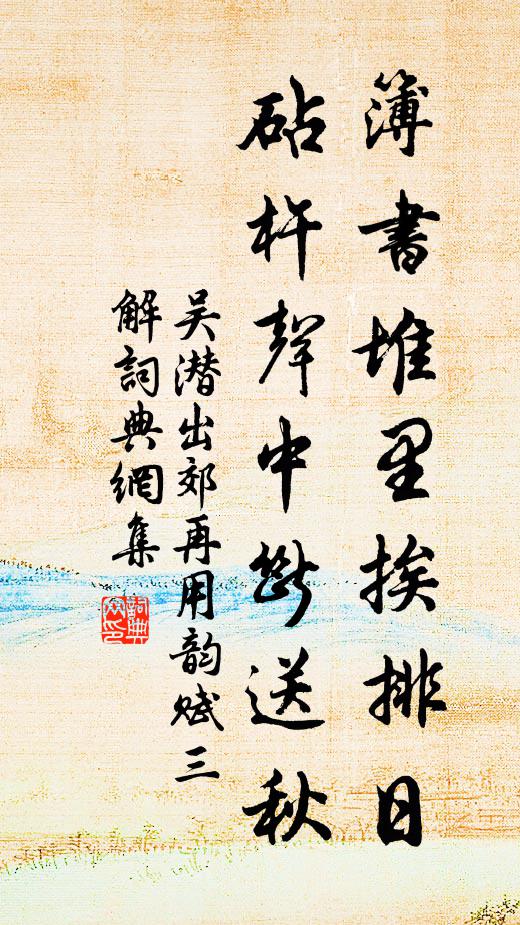 簿書堆里挨排日
砧杵聲中斷送秋
吴潜出郊再用韵赋三
解詞典網集
詞典